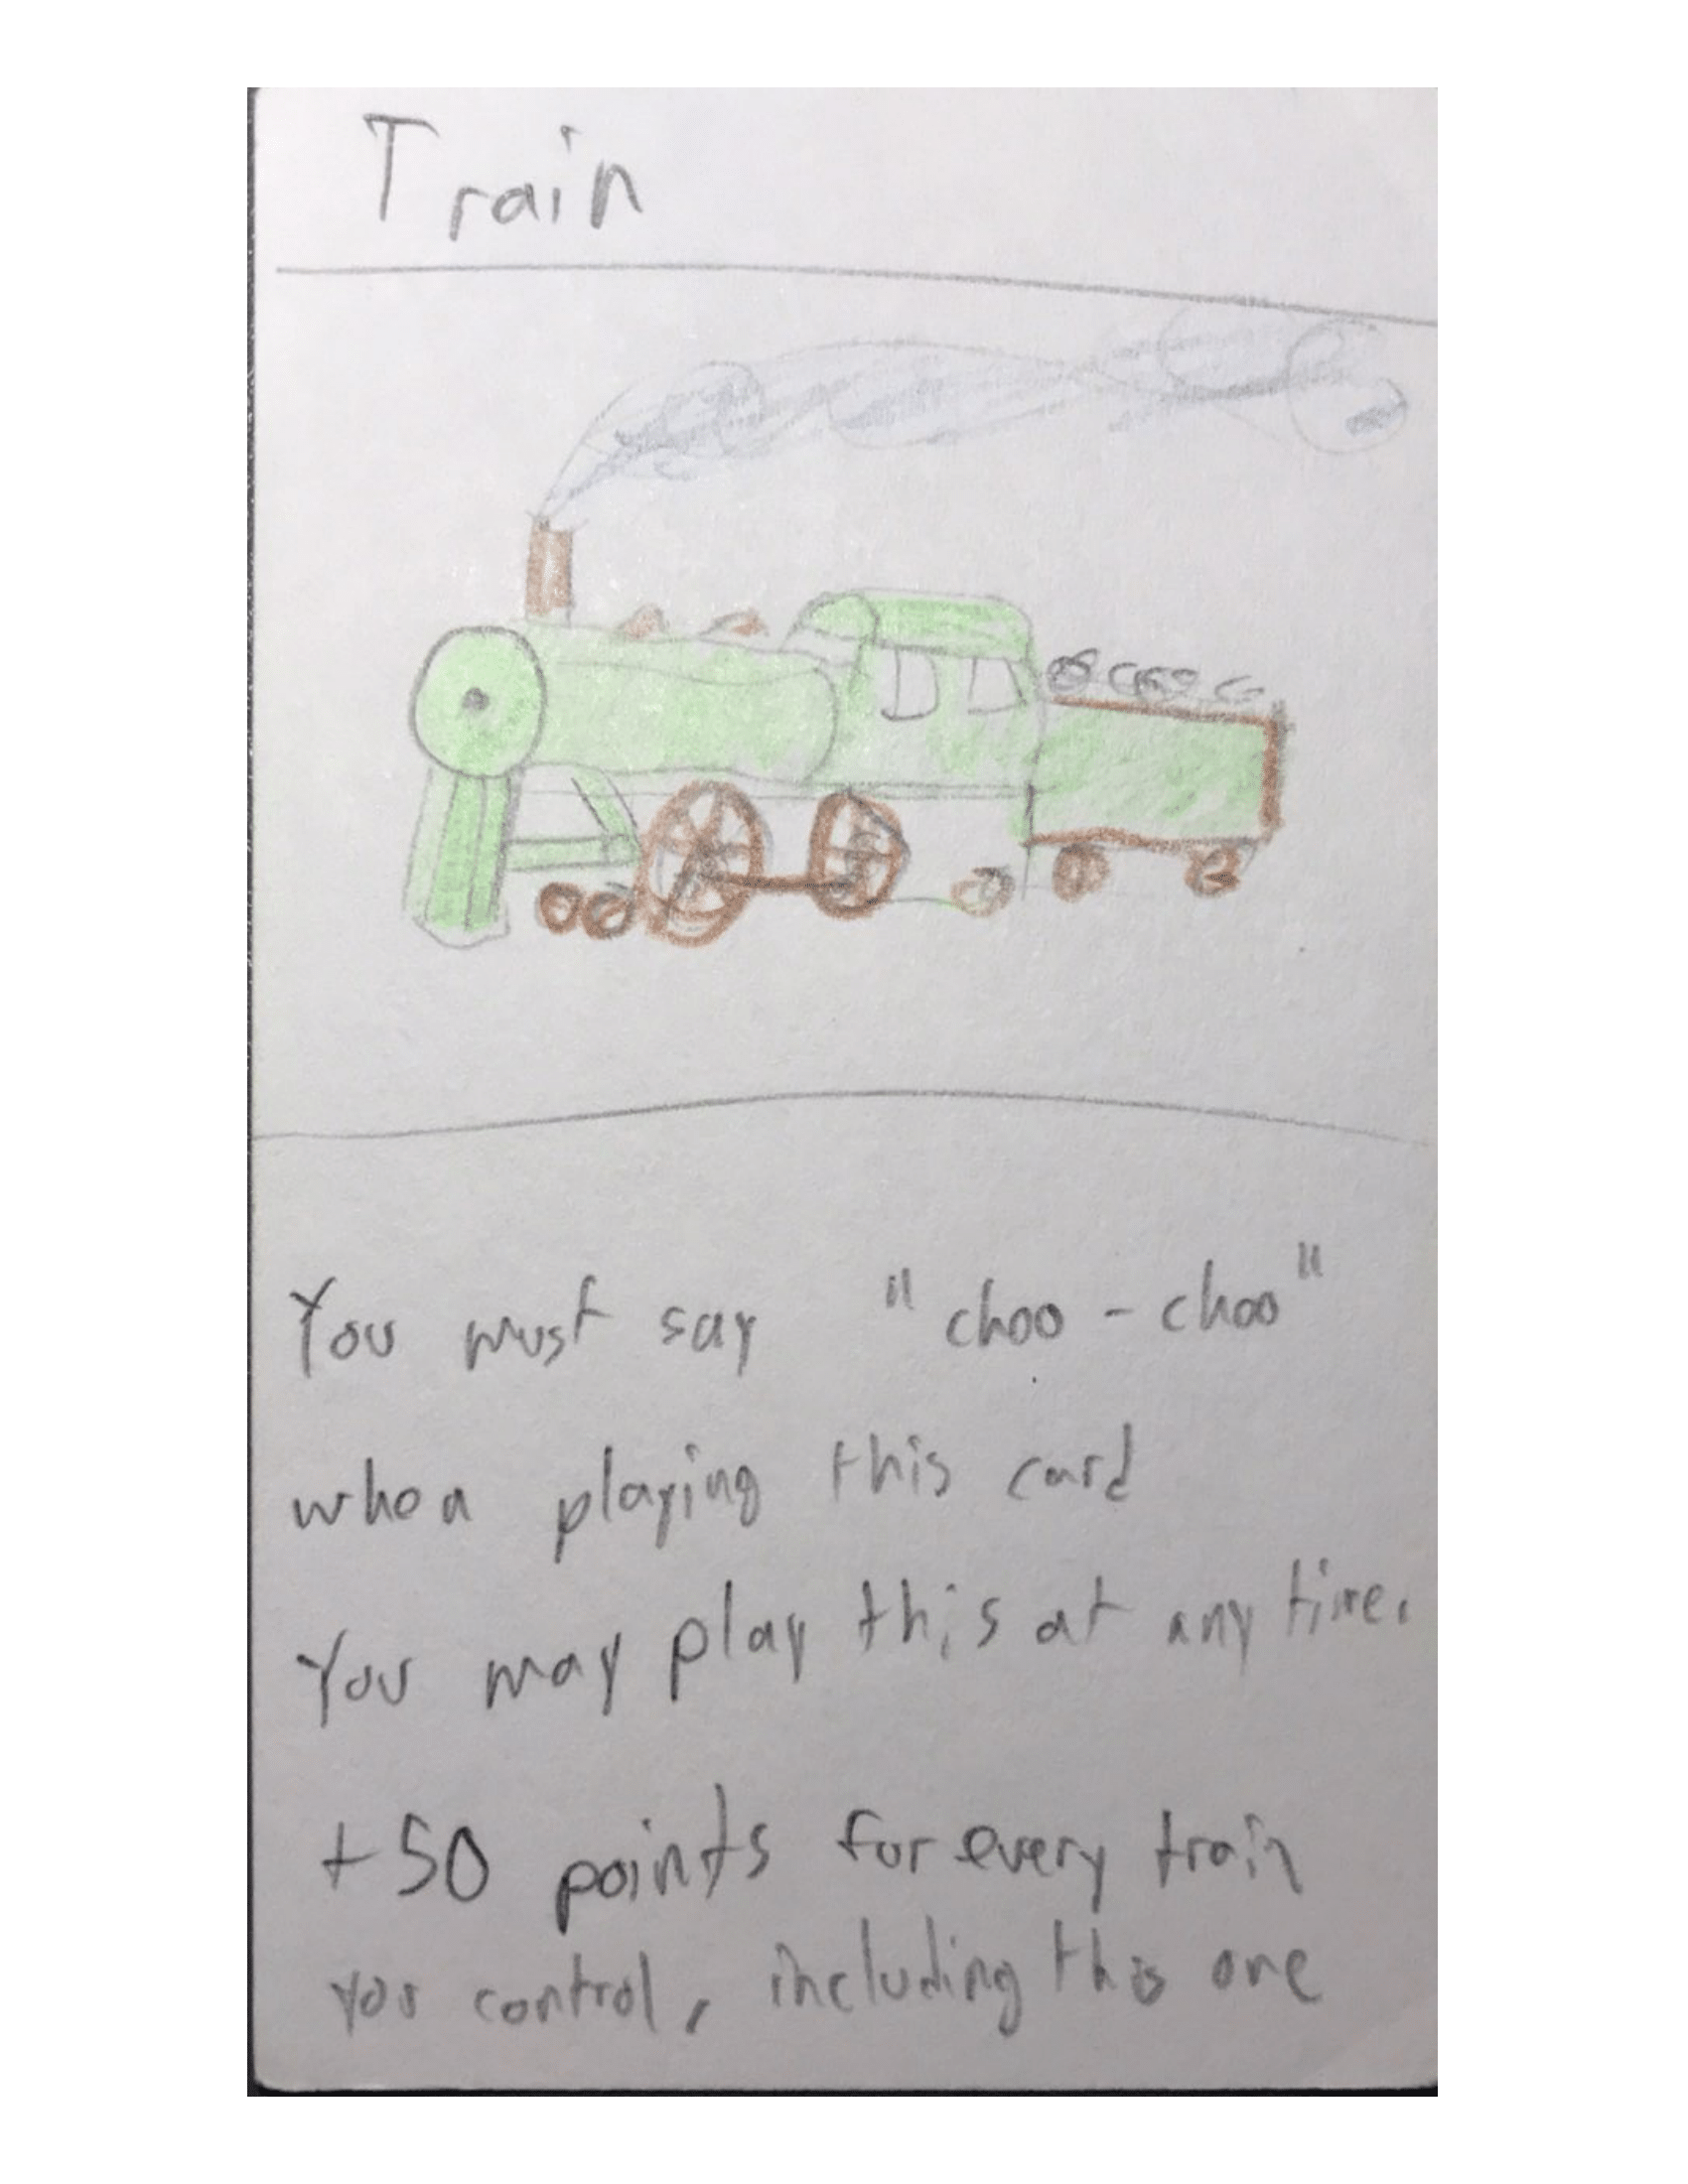 Train
You must say "choo-choo"
when playing this card
You may play this at any time.
+50 points for every train
you control, including this one